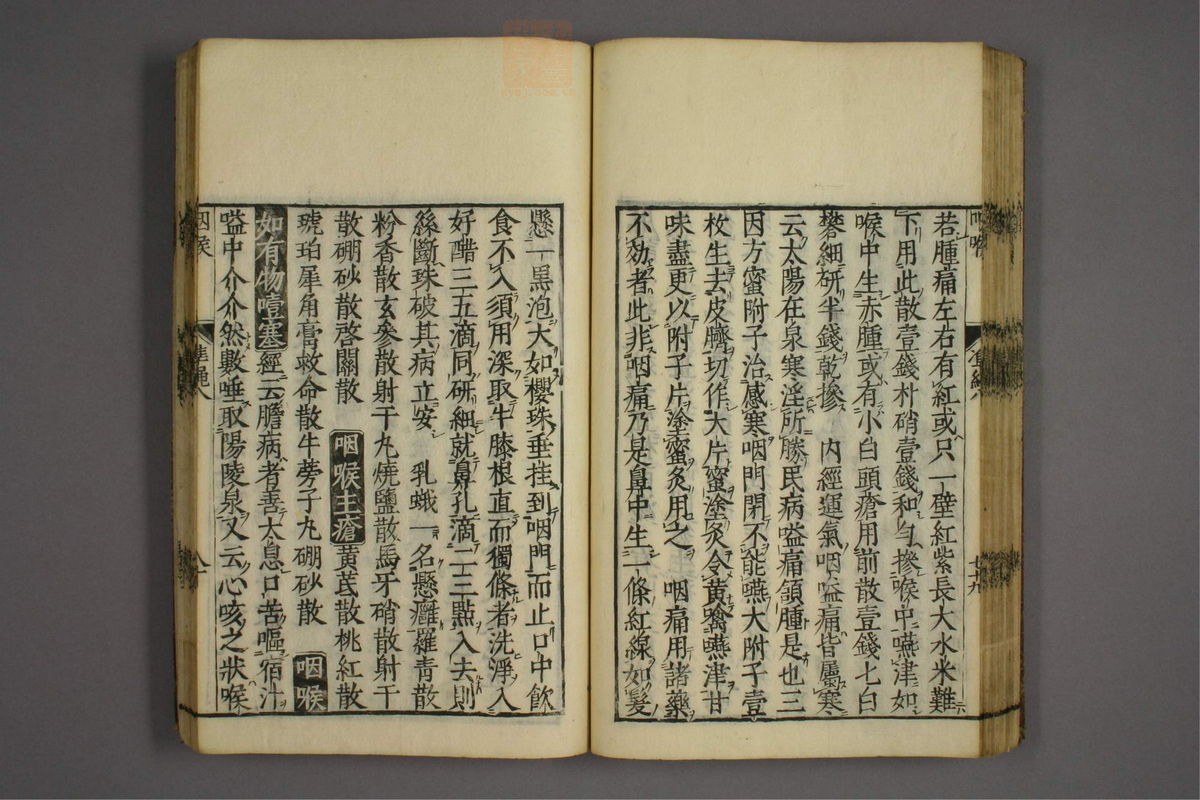 若腫痛左右有紅或只一壁紅紫長大水米難
下用此散壹錢朴硝壹錢和勻摻喉中嚥津如
喉中生赤腫或有小白頭瘡用前散壹錢七白
礬細研半錢乾摻　内經運氣咽嗌痛皆屬寒
云太陽在泉寒淫所勝民病嗌痛頷腫是也三
因方蜜附子治感寒咽門閉不能嚥大附子壹
枚生去皮臍切作大片蜜塗炙令黄噙嚥津甘
味盡更以附子片塗蜜炙用之　咽痛用諸藥
不効者此非咽痛乃是鼻中生一條紅線如髮
懸一黒泡大如櫻珠垂挂到咽門而止口中飲
食不入須用深取牛膝根直而獨條者洗淨入
好醋三五滴同研細就鼻孔滴二三點入去則
絲斷珠破其病立安　乳蛾一名懸癰羅青散
粉香散玄參散射干丸燒鹽散馬牙硝散射干
散硼砂散啓關散　咽喉生瘡黄芪散桃紅散
琥珀犀角膏救命散牛蒡子丸硼砂散　咽喉
如有物噎塞經云膽病者善太息口苦嘔宿汁
嗌中介介然數唾取陽陵泉又云心咳之狀喉
咽喉
準繩八